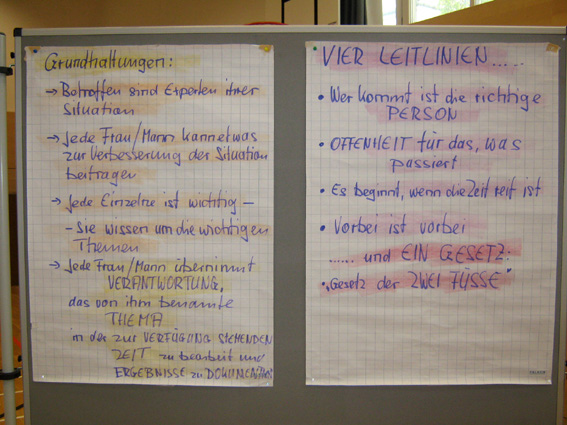 Grundhaltungen:
→ Betroffen sind Experten ihrer
Situation
→ Jede Frau/Mann kann etwas
zur Verbesserung der Situation
beitragen
→ Jede Einzelne ist wichtig –
- Sie wissen um die wichtigen
Themen
→ Jede Frau/Mann übernimmt
VERANTWORTUNG,
das von ihm benannte
THEMA
in der zur VERFÜGUNG STEHENDEN
ZEIT zu bearbeit und
ERGEBNISSE zu
VIER LEITLINIEN.....
• Wer kommt ist die richtige
PERSON
• OFFENHEIT für das, was
passiert
• Es beginnt, wenn die Zeit reif ist
• Vorbei ist vorbei
...... und EIN GESETZ:
• „Gesetz der ZWEI FÜSSE"